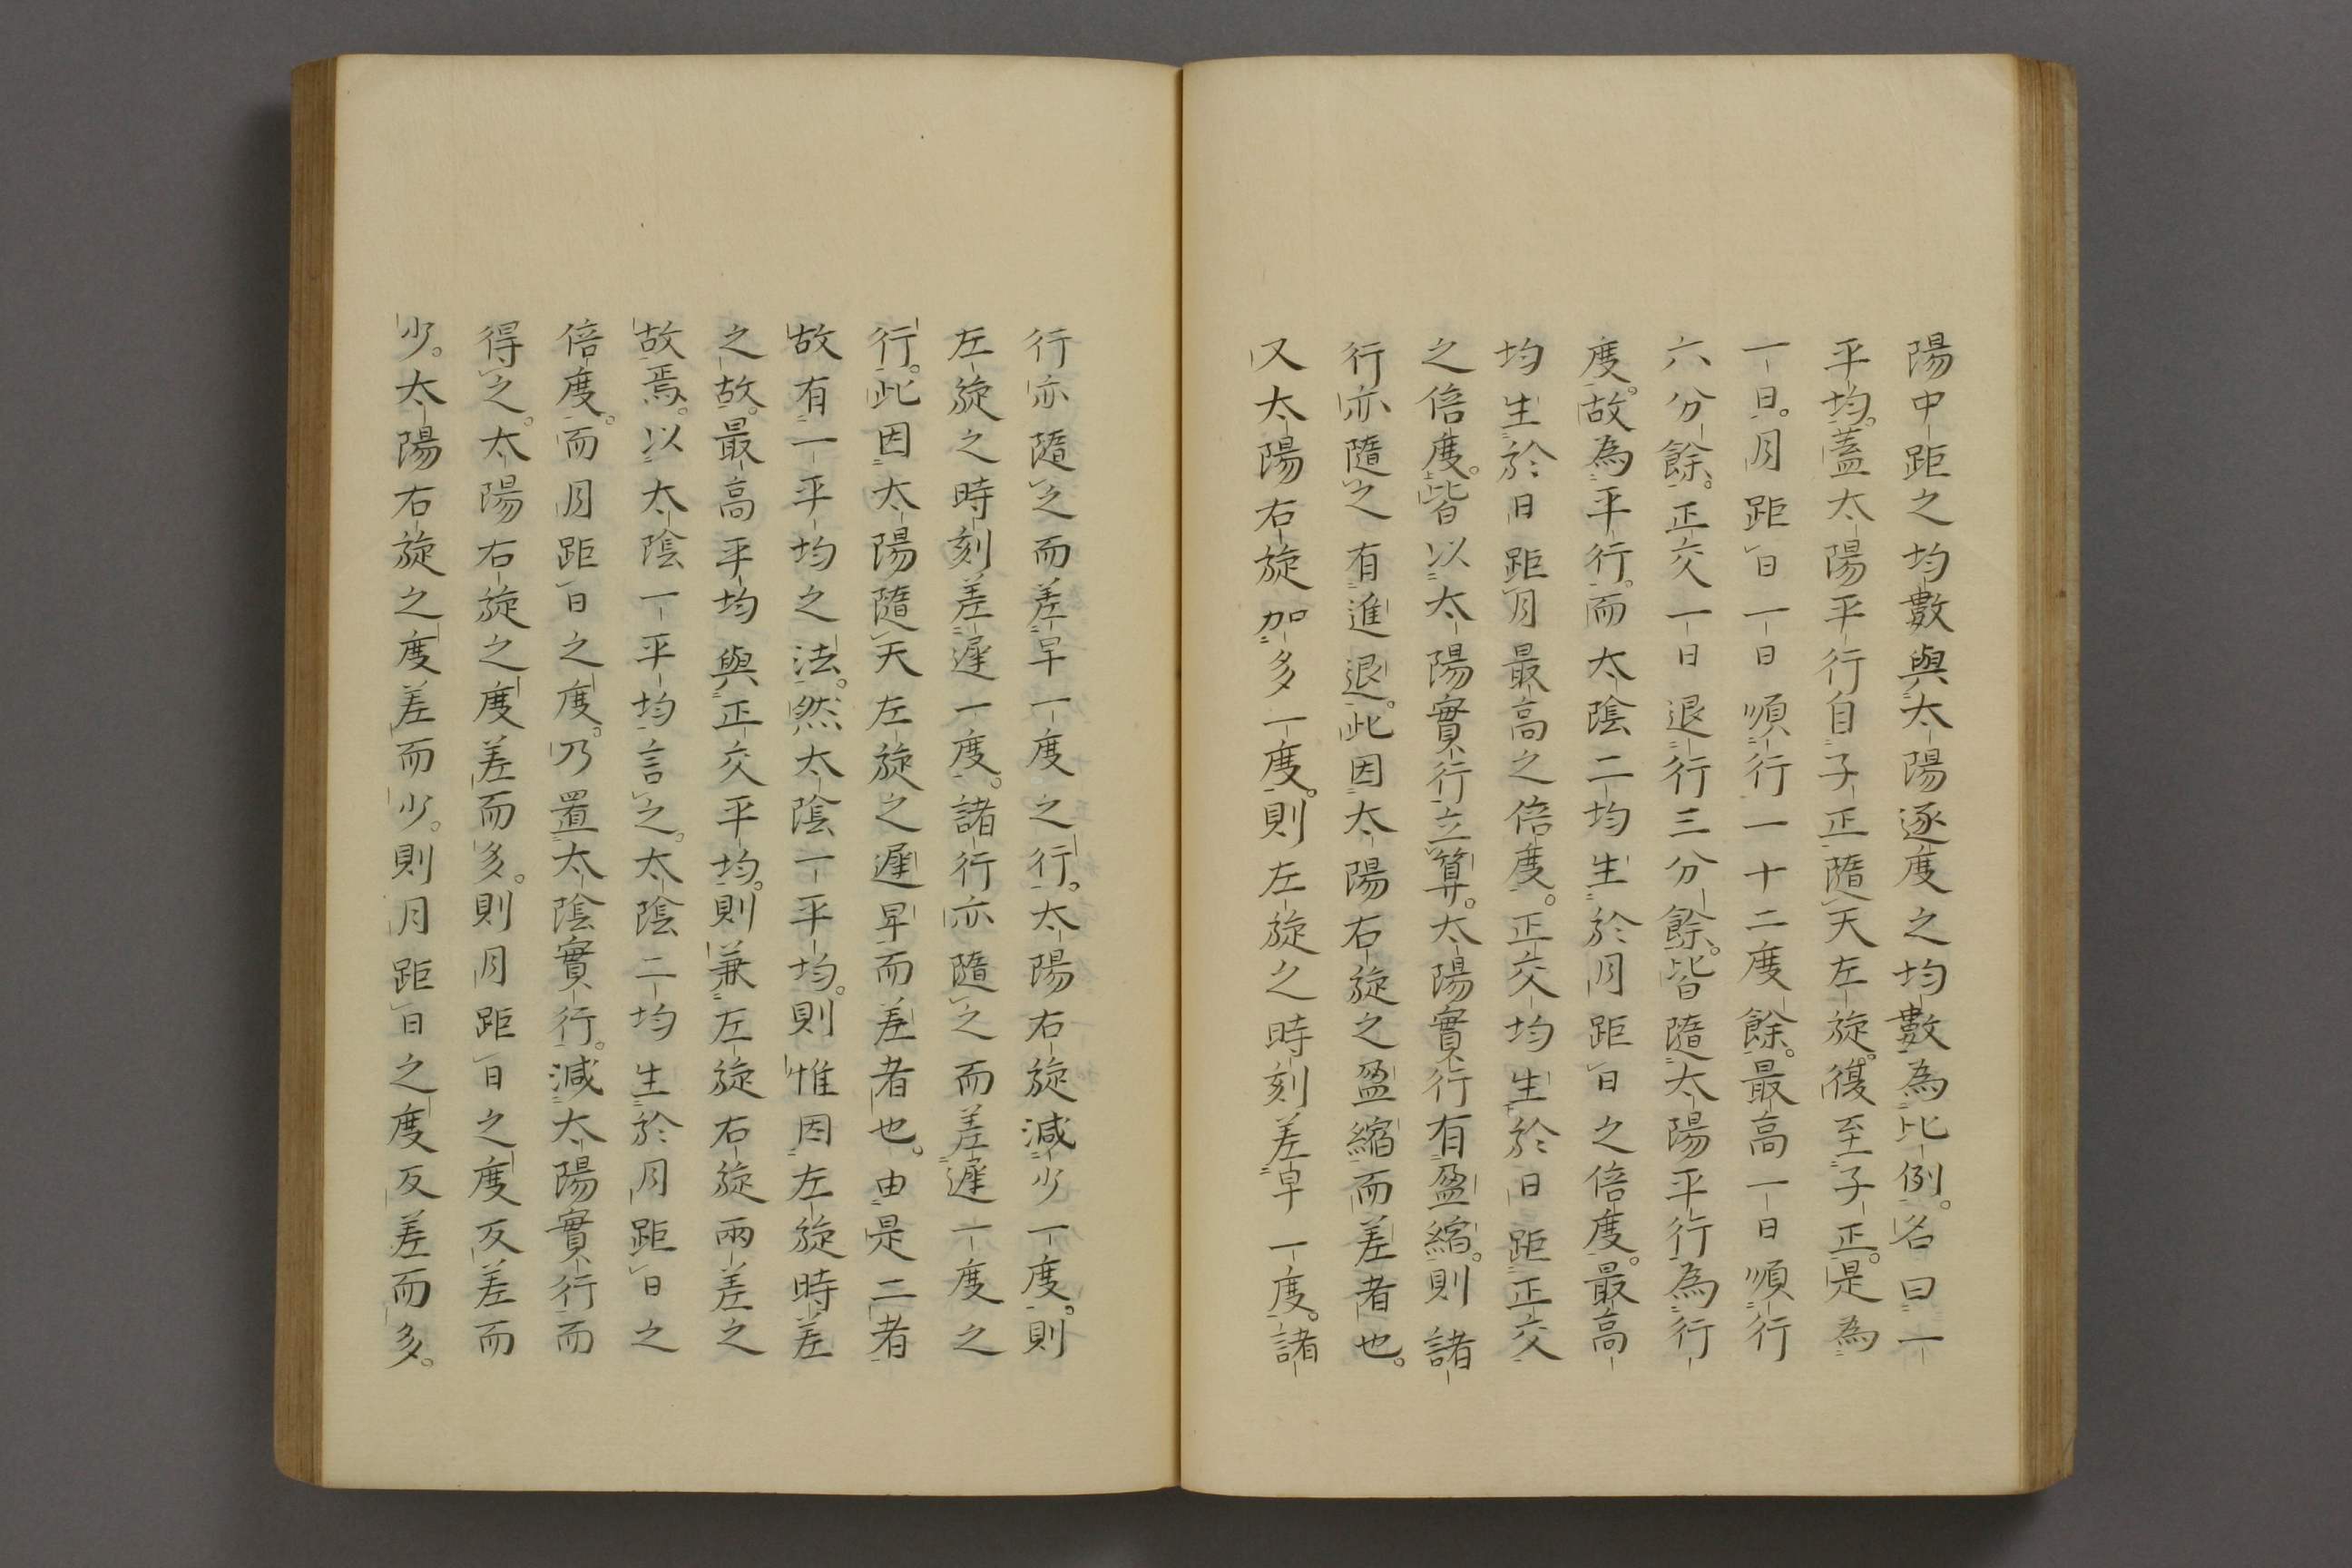 陽中距之均數與太陽逐度之均數為比例。名曰一
平均。蓋太陽平行自子正隨天左旋。復至子正。是為
一日。月距日一日順行一十二度餘。最高一日順行
六分餘。正交一日退行三分餘。皆隨太陽平行為行
度。故為平行。而太陰二均生於月距日之倍度。最高
均生於日距月最高之倍度。正交均生於日距正交
之倍度。皆以太陽實行立算。太陽實行有盈縮。則諸
行亦隨之有進退。此因太陽右旋之盈縮而差者也。
又太陽右旋加多一度。則左旋之時刻差早一度。諸
行亦隨之而差早一度之行。太陽右旋減少一度。則
左旋之時刻差遲一度。諸行亦隨之而差遲一度之
行。此因太陽隨天左旋之遲早而差者也。由是二者
故有一平均之法。然太陰一平均。則惟因左旋時差
之故。最高平均與正交平均。則兼左旋右旋兩差之
故焉。以太陰一平均言之。太陰二均生於月距日之
倍度。而月距日之度。乃置太陰實行。減太陽實行而
得之。太陽右旋之度差而多。則月距日之度反差而
少。太陽右旋之度差而少。則月距日之度反差而多。